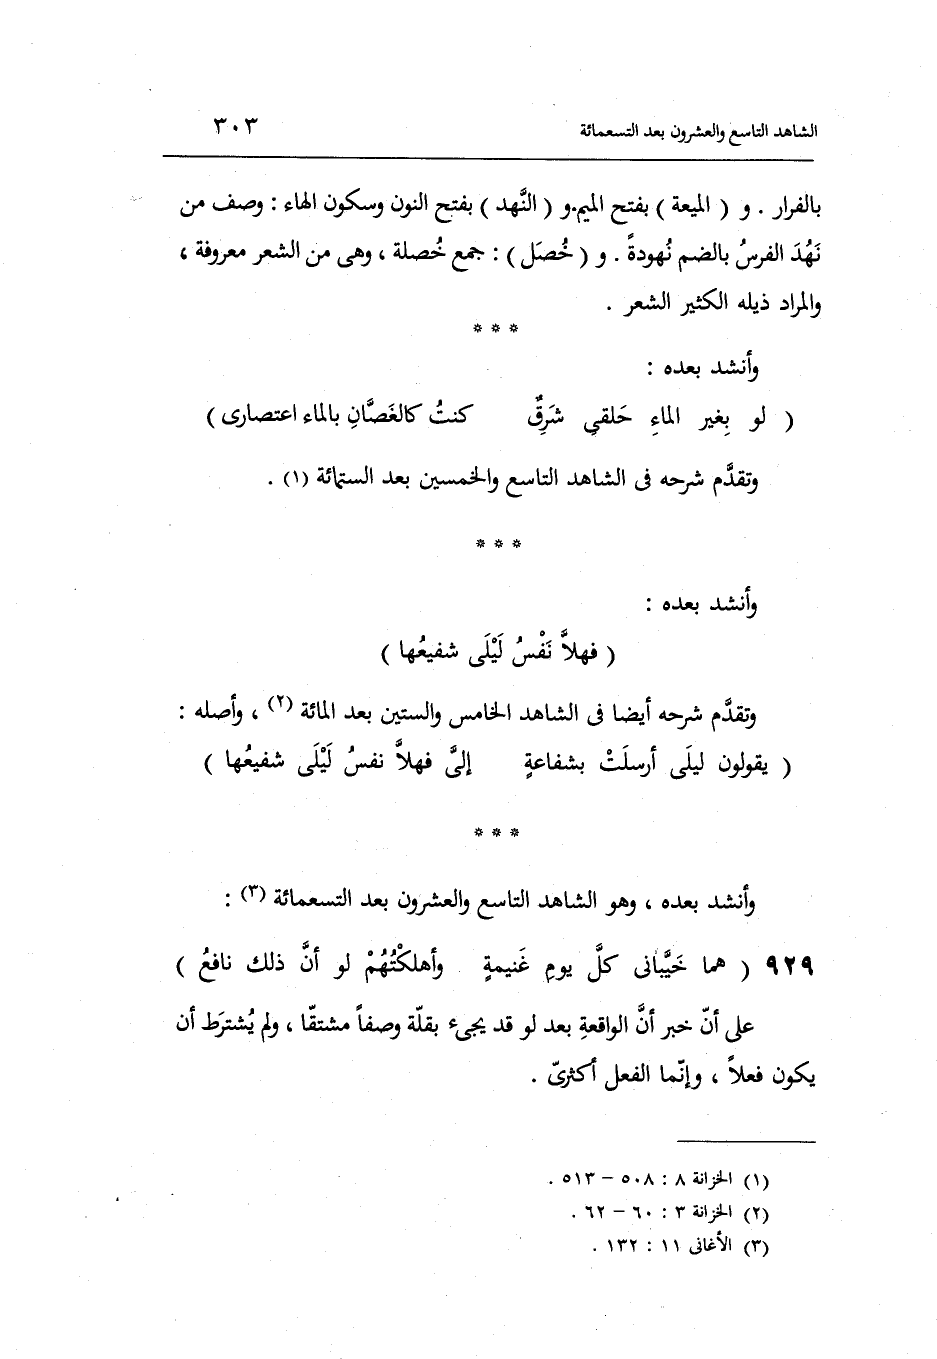 الشاهد التاسع والعشرون بعد التسعمائة ٣٠٣
بالفرار . و ( الميعة ) بفتح الميم.و ( النَّهد ) بفتح النون وسكون الهاء : وصف من
نَهُدَ الفرسُ بالضم نُهودةً . و ( خُصَل ) : جمع خُصلة ، وهى من الشعر معروفة ،
والمراد ذيله الكثير الشعر .
* * *
وأنشد بعده :
( لو بِغير الماءِ حَلقى شَرِقٌ كنتُ كالغَصَّانِ بالماء اعتصارى )
وتقدَّم شرحه فى الشاهد التاسع والخمسين بعد الستمائة (١) .
* * *
وأنشد بعده :
( فهلاَّ نَفْسُ لَيْلَى شفيعُها )
وتقدَّم شرحه أيضا فى الشاهد الخامس والستين بعد المائة (٢) ، وأصله :
( يقولون ليلَى أرسلَتْ بشفاعةٍ إلىَّ فهلاَّ نفسُ لَيْلَى شفيعُها )
* * *
وأنشد بعده ، وهو الشاهد التاسع والعشرون بعد التسعمائة (٣) :
٩٢٩ ( هما خَيَّبانى كلَّ يومِ غَنيمةٍ وأهلكْتُهُمْ لو أنَّ ذلك نافعُ )
على أنّ خبر أنَّ الواقعةِ بعد لو قد يجىء بقلّة وصفاً مشتقّا ، ولم يُشترَط أن
يكون فعلاً ، وإنّما الفعل أكثرىّ .
(١) الخزانة ٨ : ٥٠٨ – ٥١٣ .
(٢) الخزانة ٣ : ٦٠ – ٦٢ .
(٣) الأغانى ١١ : ١٣٢ .